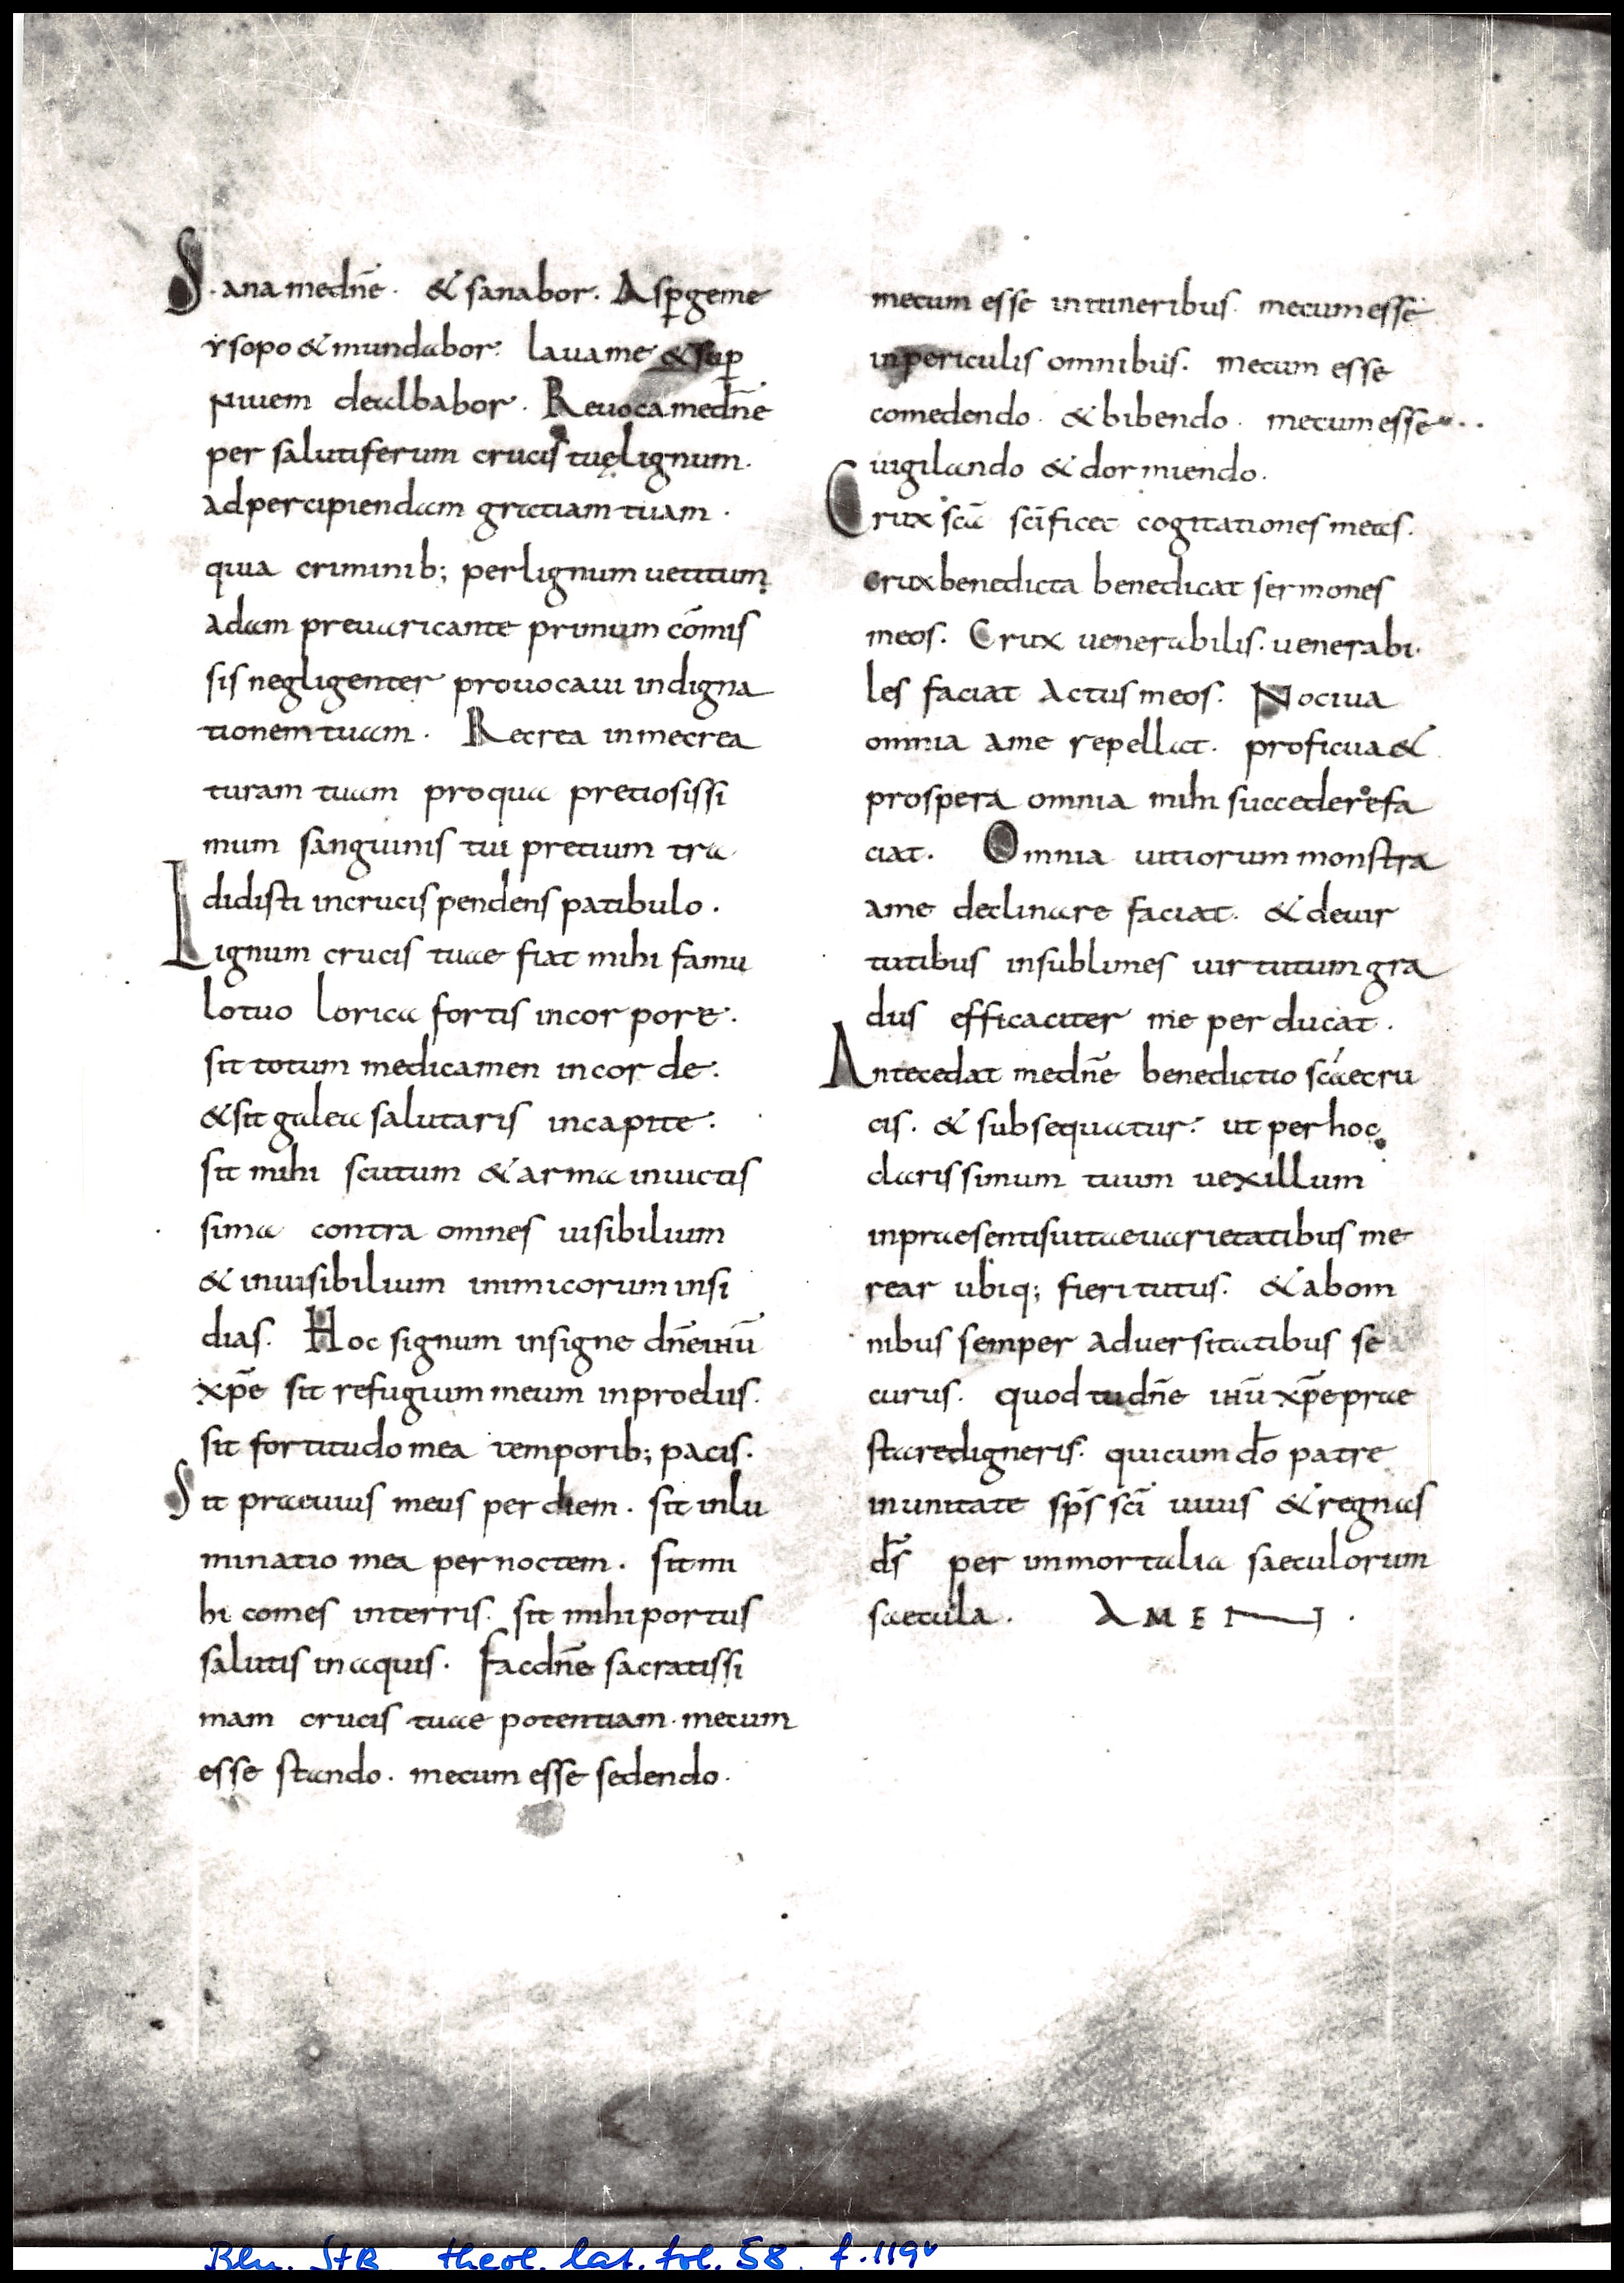 S.ana medñe. & sanabor. Asp̱geme
ysopo & mundabor. lauame & sup̱
Niuem dealbabor. Reuoca medñe
per salutiferum crucis tuęlignum.
adpercipiendam gratiam tuam.
quia criminib; perlignum uetitum
adam preuaricante primum com̄is
sis negligenter prouocaui indigna
tionem tuam. Recrea in mecrea
turam tuam pro qua pretiosissi
mum sanguinis tui pretium tra
didisti incrucis pendens patibulo.
Lignum crucis tuae fiat mihi famu
lo tuo lorica fortis in corpore.
sit totum medicamen in corde.
& sit galea salutaris in capite.
sit mihi scutum & arma inuictis
sima contra omnes uisibilium
& inuisibilium inimicorum insi
dias. Hoc signum insigne dñe ihū
xp̄e sit refugium meum in proeliis.
sit fortitudo mea temporib; pacis.
Sit praeuius meus per diem. sit inlu
minatio mea per noctem. sit mi
hi comes in terris. sit mihi portus
salutis in aquis. fac dñe sacratissi
mam crucis tuae potentiam. mecum
esse stando. mecum esse sedendo.
mecum esse in itineribus. mecum esse
in periculis omnibus. mecum esse
comedendo. & bibendo. mecum esse
uigilando & dormiendo.
Crux sc̄a sc̄ificet cogitationes meas.
crux benedicta benedicat sermones
meos. Crux uenerabilis. uenerabi
les faciat actus meos. Nociua
omnia ame repellat. proficua &
prospera omnia mihi succedere fa
ciat. Omnia uitiorum monstra
ame declinare faciat. & de uir
tutibus in sublimes uirtutum gra
dus efficaciter me perducat.
Antecedat medñe benedictio sc̄ae cru
cis. & subsequatur. ut per hoc
clarissimum tuum uexillum
in praesentis uitae uarietatibus me
rear ubiq; fieri tutus. & abom
nibus semper aduersitatibus se
curus. quod tu dñe ihū xp̄e prae
stare digneris. qui cum dō patre
in unitate sp̄s sc̄i uiuis & regnas
d̄s per immortalia saeculorum
saecula. AMEN.
Bln. StB. theol. lat. fol. 58. f. 119v